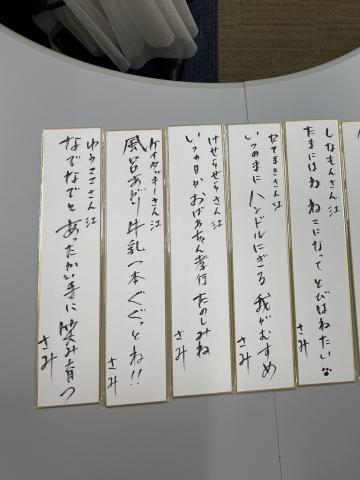 しなもんさん江
たまにはね ねこになって とびはねたい
さみ
だてまきさん江
いつのまに ハンドルにぎる 我がむすめ
さみ
けせらせらさん江
いつの日か おばあちゃん孝行 たのしみね
さみ
ケイタッキーさん江
風呂あがり 牛乳一本 ぐぐっとね!!
さみ
ゆうこささん江
なでなでと あったかい手に 笑み育つ
さみ